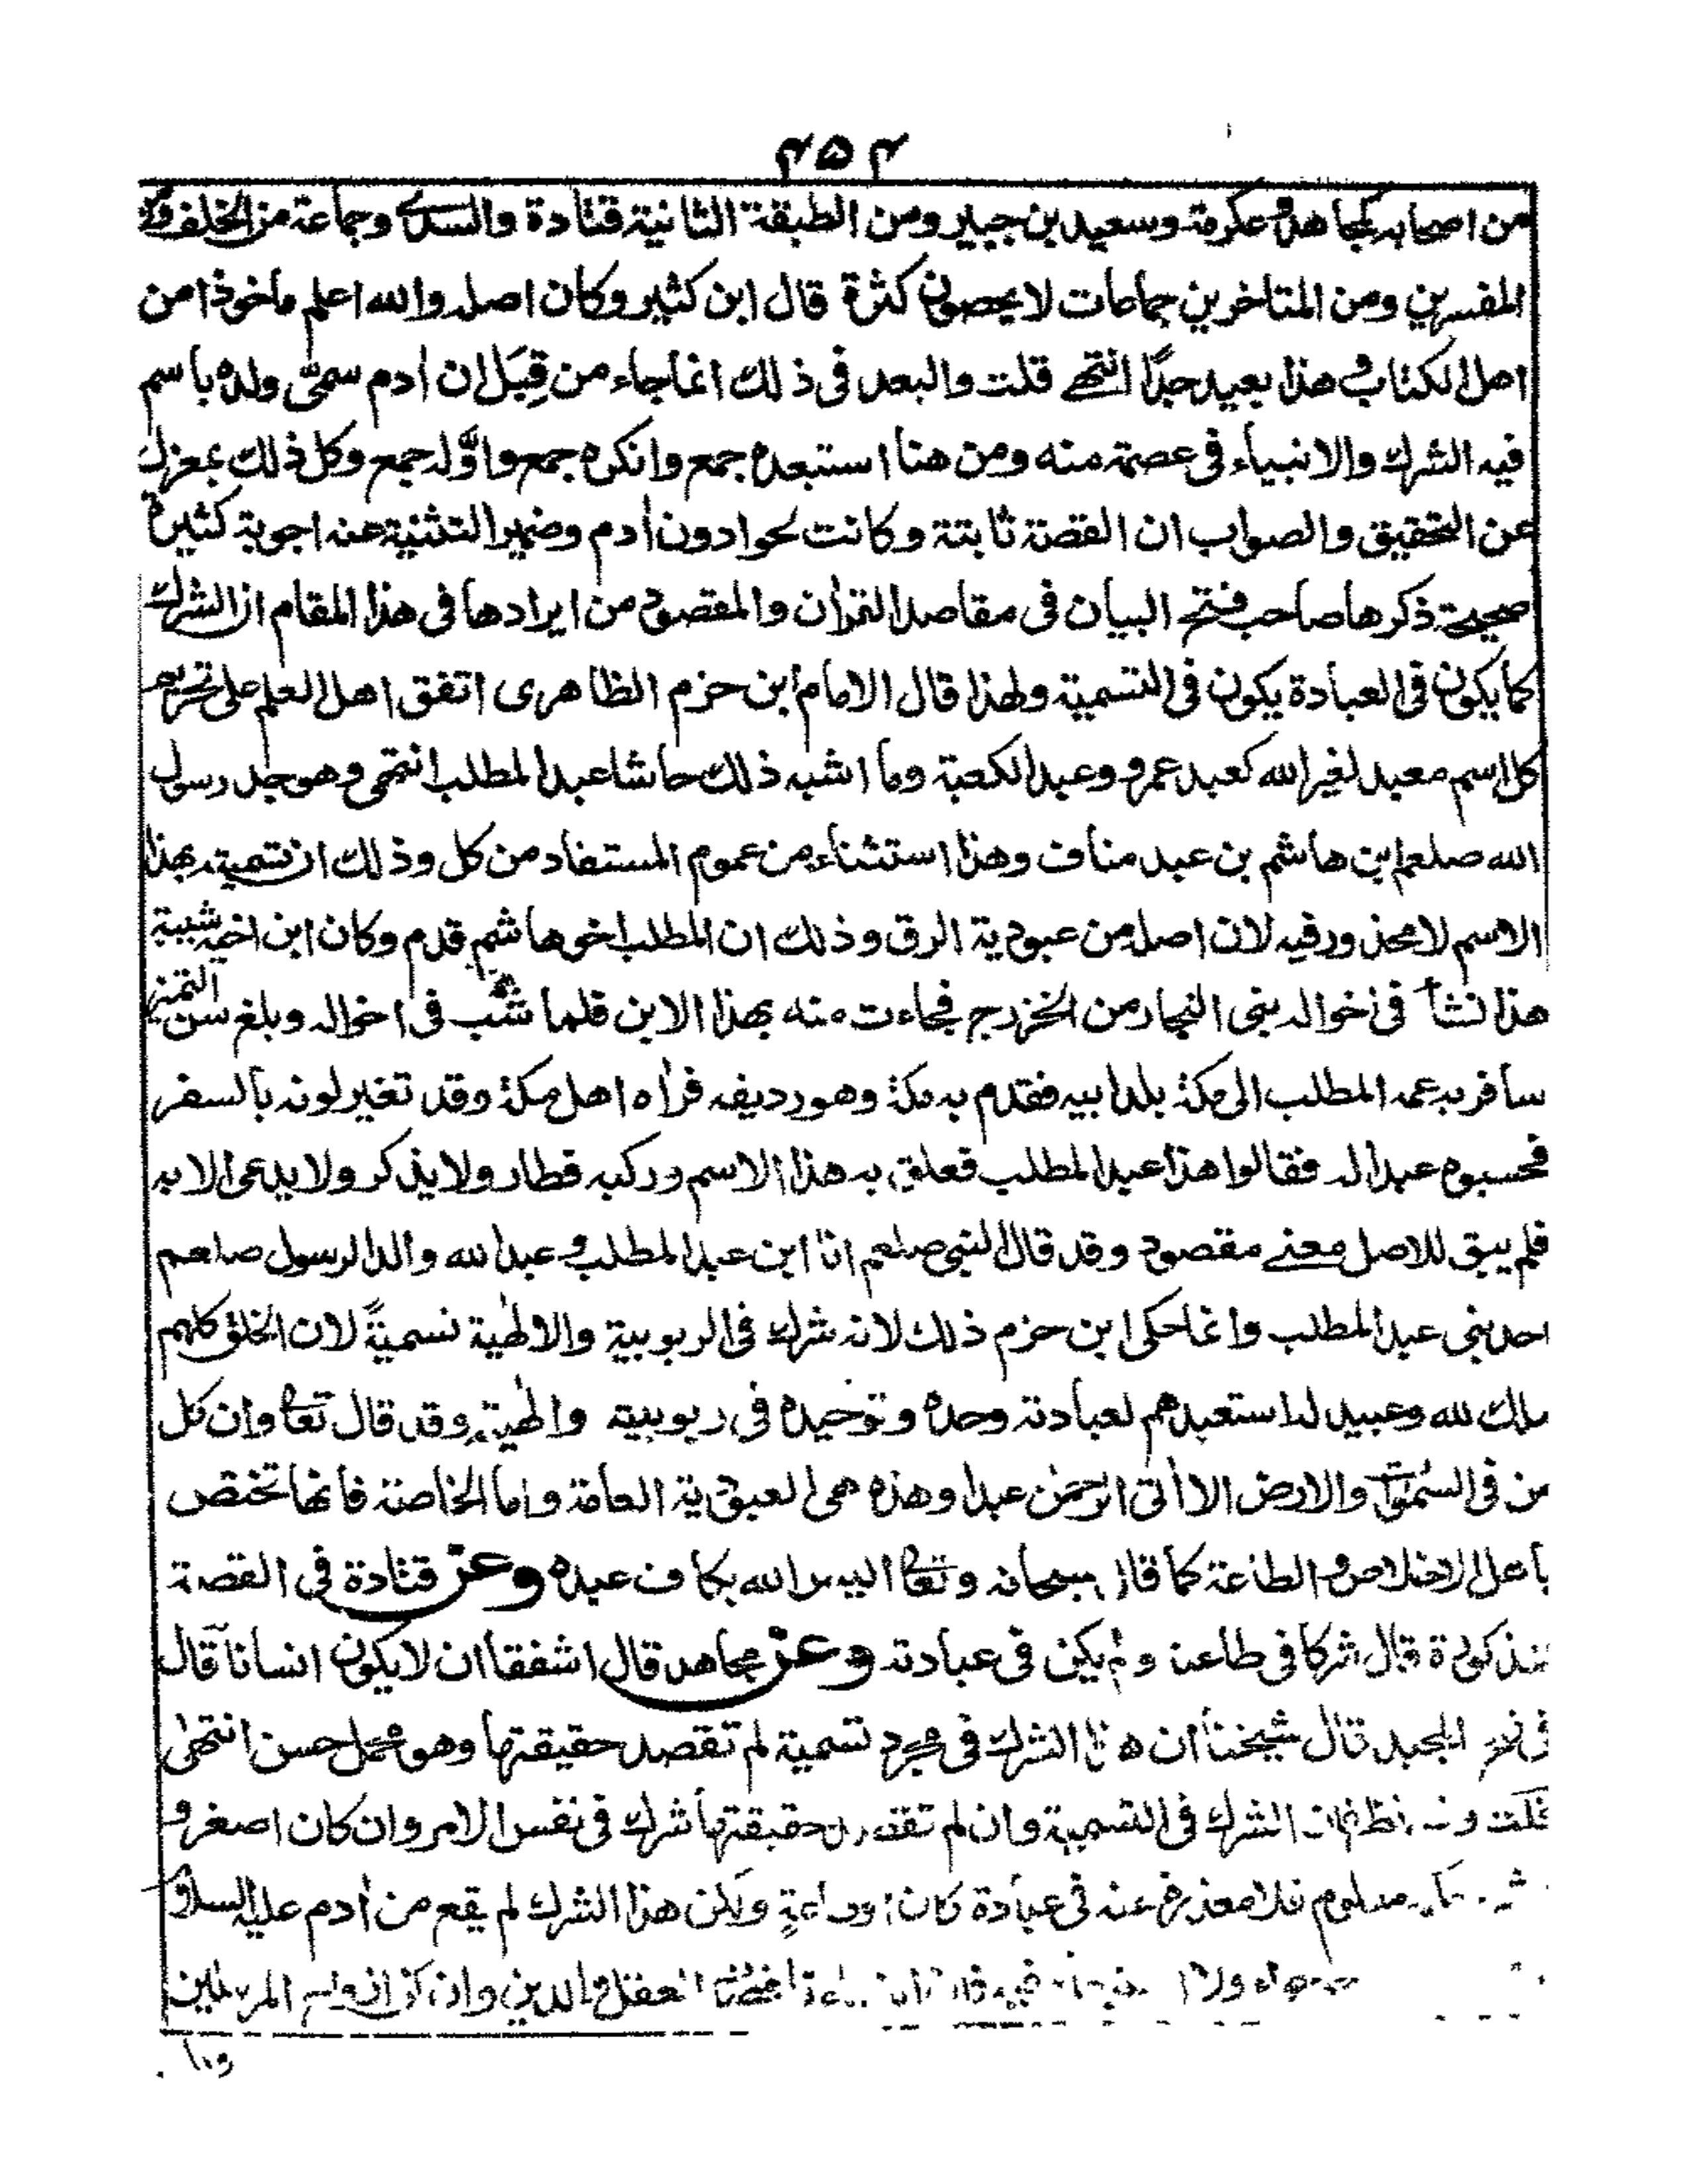 ٤٥٤
من اصحابه كمجاهد وعكرمة وسعيد بن جبير ومن الطبقة الثانية قتادة والسدى وجماعة من الخلف ومن
المفسرين ومن المتاخرين جماعات لا يحصون كثرة قال ابن كثير وكان اصله والله اعلم ماخوذا من
اهل الكتاب وهذا بعيد جدًا انتهى قلت والبعد فى ذلك انما جاء من قِبَل ان ادم سمّى ولده باسم
فيه الشرك والانبياء فى عصمة منه ومن هنا استبعده جمع وانكره جمع واوَّله جمع وكل ذلك بمعزل
عن التحقيق والصواب ان القصة ثابتة وكانت لحوا دون ادم وضمير التثنية عنه اجوبة كثيرة
صحيحة ذكرها صاحب فتح البيان فى مقاصد القران والمقصود من ايرادها فى هذا المقام ان الشرك
كما يكون فى العبادة يكون فى التسمية ولهذا قال الامام ابن حزم الظاهرى اتفق اهل العلم على تحريم
كل اسم معبد لغير الله كعبد عمرو وعبد الكعبة وما اشبه ذلك حاشا عبد المطلب انتهى وهو جد رسول
الله صلعم ابن هاشم بن عبد مناف وهذا استثناء من عموم المستفاد من كل وذلك ان تسميته بهذا
الاسم لا محذور فيه لان اصله من عبودية الرق وذلك ان المطلب اخو هاشم قدم وكان ابن اخيه شيبة
هذا نشأ فى اخواله بنى النجار من الخزرج فجاءت منه بهذا الابن فلما شب فى اخواله وبلغ سن التميز
سافر به عمه المطلب الى مكة بلد ابيه فقدم به مكة وهو رديفه فراه اهل مكة وقد تغير لونه بالسفر
فحسبوه عبدا له فقالوا هذا عبد المطلب فعلق به هذا الاسم وركبه فطار ولا يذكر ولا يدعى الا به
فلم يبق للاصل معنى مقصود وقد قال النبى صلعم انا ابن عبد المطلب وعبد الله والد الرسول صلعم
احد بنى عبد المطلب وانما حكى ابن حزم ذلك لانه شرك فى الربوبية والالٰهية تسميةً لان الخلق كلهم
ملك لله وعبيد له استعبدهم لعبادته وحده وتوحيده فى ربوبيته والٰهيته وقد قال تعالى وان كل
من فى السمٰوٰت والارض الا اٰتى الرحمٰن عبدا وهذه هى العبودية العامة واما الخاصة فانها تختص
باهل الاخلاص والطاعة كما قال سبحانه وتعالى اليس الله بكاف عبده وعن قتادة فى القصة
المذكورة قال شركا فى طاعته ولم يكن فى عبادته وعن مجاهد قال اشفقا ان لا يكون انسانا قال
فى فتح المجيد قال شيخنا ان هذا الشرك فى مجرد تسمية لم تقصد حقيقتها وهو محمل حسن انتهى
قلت وفيه نظر فان الشرك فى التسمية وان لم تقصد حقيقتها شرك فى نفس الامر وان كان اصغر و
معلوم فلا معذرة عنه فى عبادة كان او طاعةٍ ولكن هذا الشرك لم يقع من ادم عليه السلام
حواء ولا العقل والدين وان المرسلين